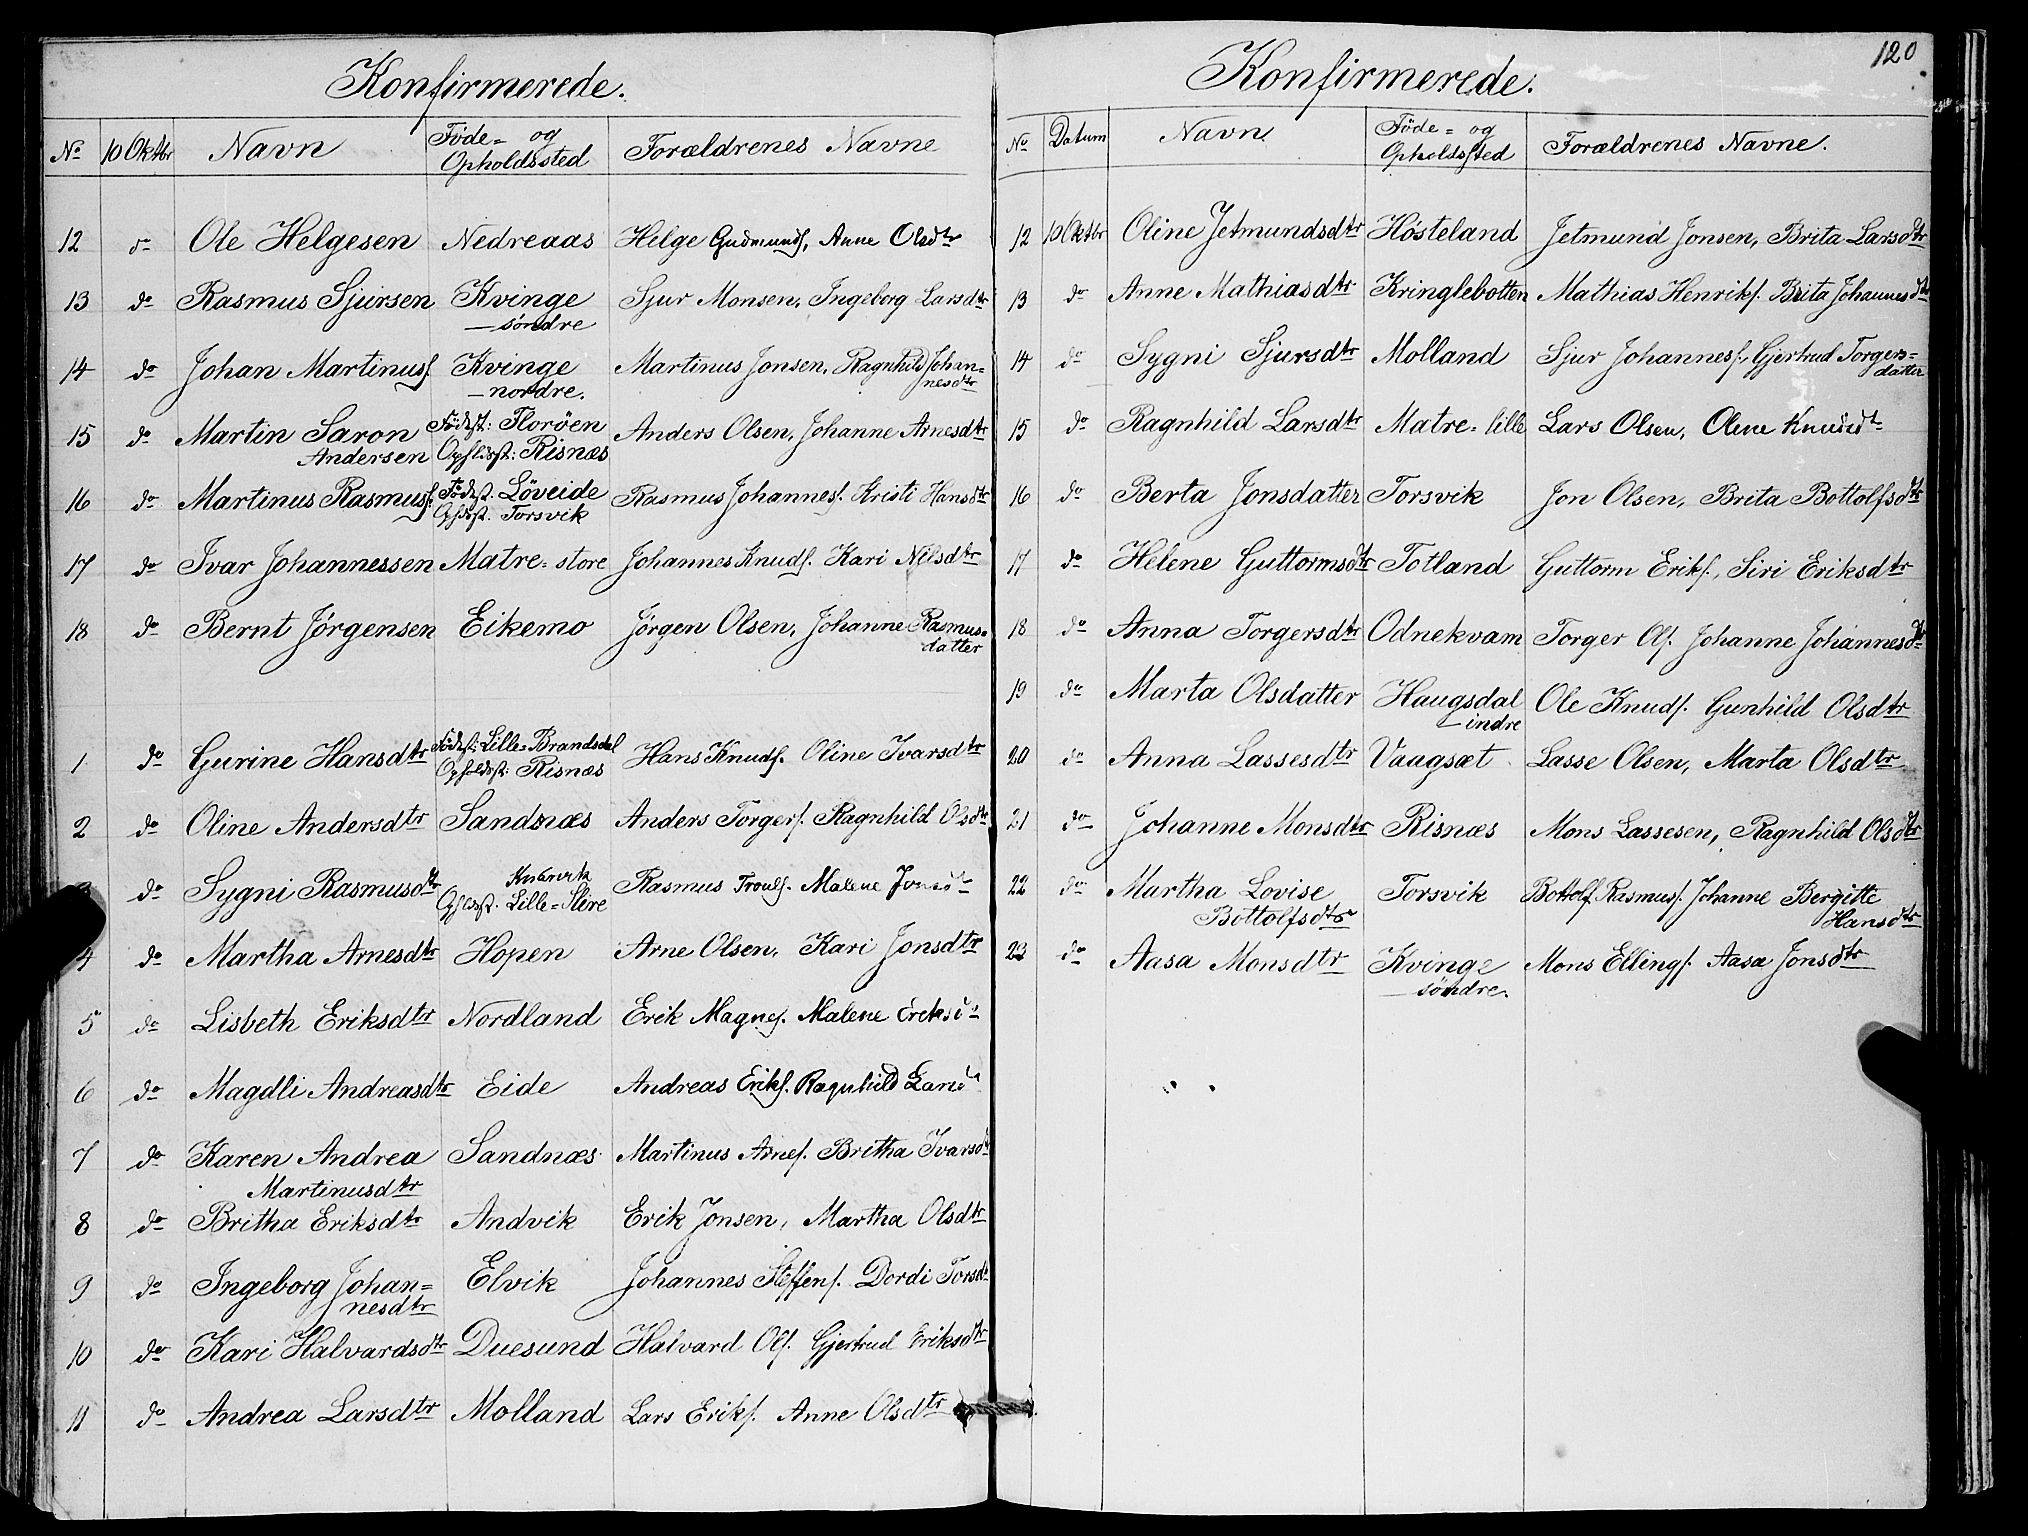 Konfirmerede.
No 10 Oktbr Navn Föde= og Opholdssted Forældrenes Navne
12 do Ole Helgesen Nedreaas Helge Gudmunds. Anne Olsdtr
13 do Rasmus Sjursen Kvinge Sjur Monsen, Ingeborg Larsdtr
— söndre
14 do Johan Martinus. Kvinge Martinus Jonsen, Ragnhild Johan=
— nordre. nesdtr
15 do Martin Saron Födest: Florøen Anders Olsen, Johanne Arnesdtr
Andersen Ophldsst: Risnæs
16 do Martinus Rasmuss. Födest. Löveide Rasmus Johanness. Kristi Hansdtr
Ophldsst. Torsvik
17 do Ivar Johannessen Matre= store Johannes Knuds. Kari Nilsdtr
18 do Bernt Jörgensen Eikemo Jörgen Olsen, Johanne Rasmus=
datter
1 do Gurine Hansdtr Födest: Lille=Brandsdal Hans Knuds. Oline Ivarsdtr
Opholdsst: Risnæs
2 do Oline Andersdtr Sandnæs Anders Torgers. Ragnhild Olsdtr
do Sygni Rasmusdtr Knarvik Rasmus Trouls. Malene Jonsd
Ophldsst. Lille=
4 do Martha Arnesdtr Hopen Arne Olsen, Kari Jonsdtr
5 do Lisbeth Eriksdtr Nordland Erik Magnes. Malene Eriksd
6 do Magdli Andreasdtr Eide Andreas Eriks. Ragnhild
7 do Karen Andrea Sandnæs Martinus Arnes. Britha Ivarsdtr
Martinusdtr
8 do Britha Eriksdtr Andvik Erik Jonsen, Martha Olsdtr
9 do Ingeborg Johan= Elvik Johannes Steffens. Dordi Torsdtr
nesdtr
10 do Kari Halvardsdtr Duesund Halvard Ols. Gjertrud Eriksdtr
11 do Andrea Larsdtr Molland Lars Eriks. Anne Olsdtr
120
Konfirmerede.
No Datum Navn. Föde= og Opholdssted Forældrenes Navne.
12 10 Oktbr Oline Jetmundsdtr Hösteland Jetmund Jonsen, Brita Larsdtr
13 do Anne Mathiasdtr Kringlebotten Mathias Henriks. Brita Johannesdtr
14 do Sygni Sjursdtr Molland Sjur Johanness. Gjertrud Torgers=
datter
15 do Ragnhild Larsdtr Matre= lille Lars Olsen, Olene Knudsdt
16 do Berta Jonsdatter Torsvik Jon Olsen, Brita Bottolfsdtr
17 do Helene Guttormsdtr Totland Guttorm Eriks, Siri Eriksdtr
18 do Anna Torgersdtr Odnekvam Torger Ols. Johanne Johannesdtr
19 do Marta Olsdatter Haugsdal Ole Knuds. Gunhild Olsdtr
— indre
20 do Anna Lassesdtr Vaagsæt Lasse Olsen, Marta Olsdtr
21 do Johanne Monsdtr Risnæs Mons Lassesen, Ragnhild Olsdtr
22 do Martha Lovise Torsvik Bottolf Rasmuss. Johanne Bergitte
Bottolfsdtr Hansdtr
23 do Aasa Monsdtr Kvinge Mons Ellings. Aasa Jonsdtr
— söndre.